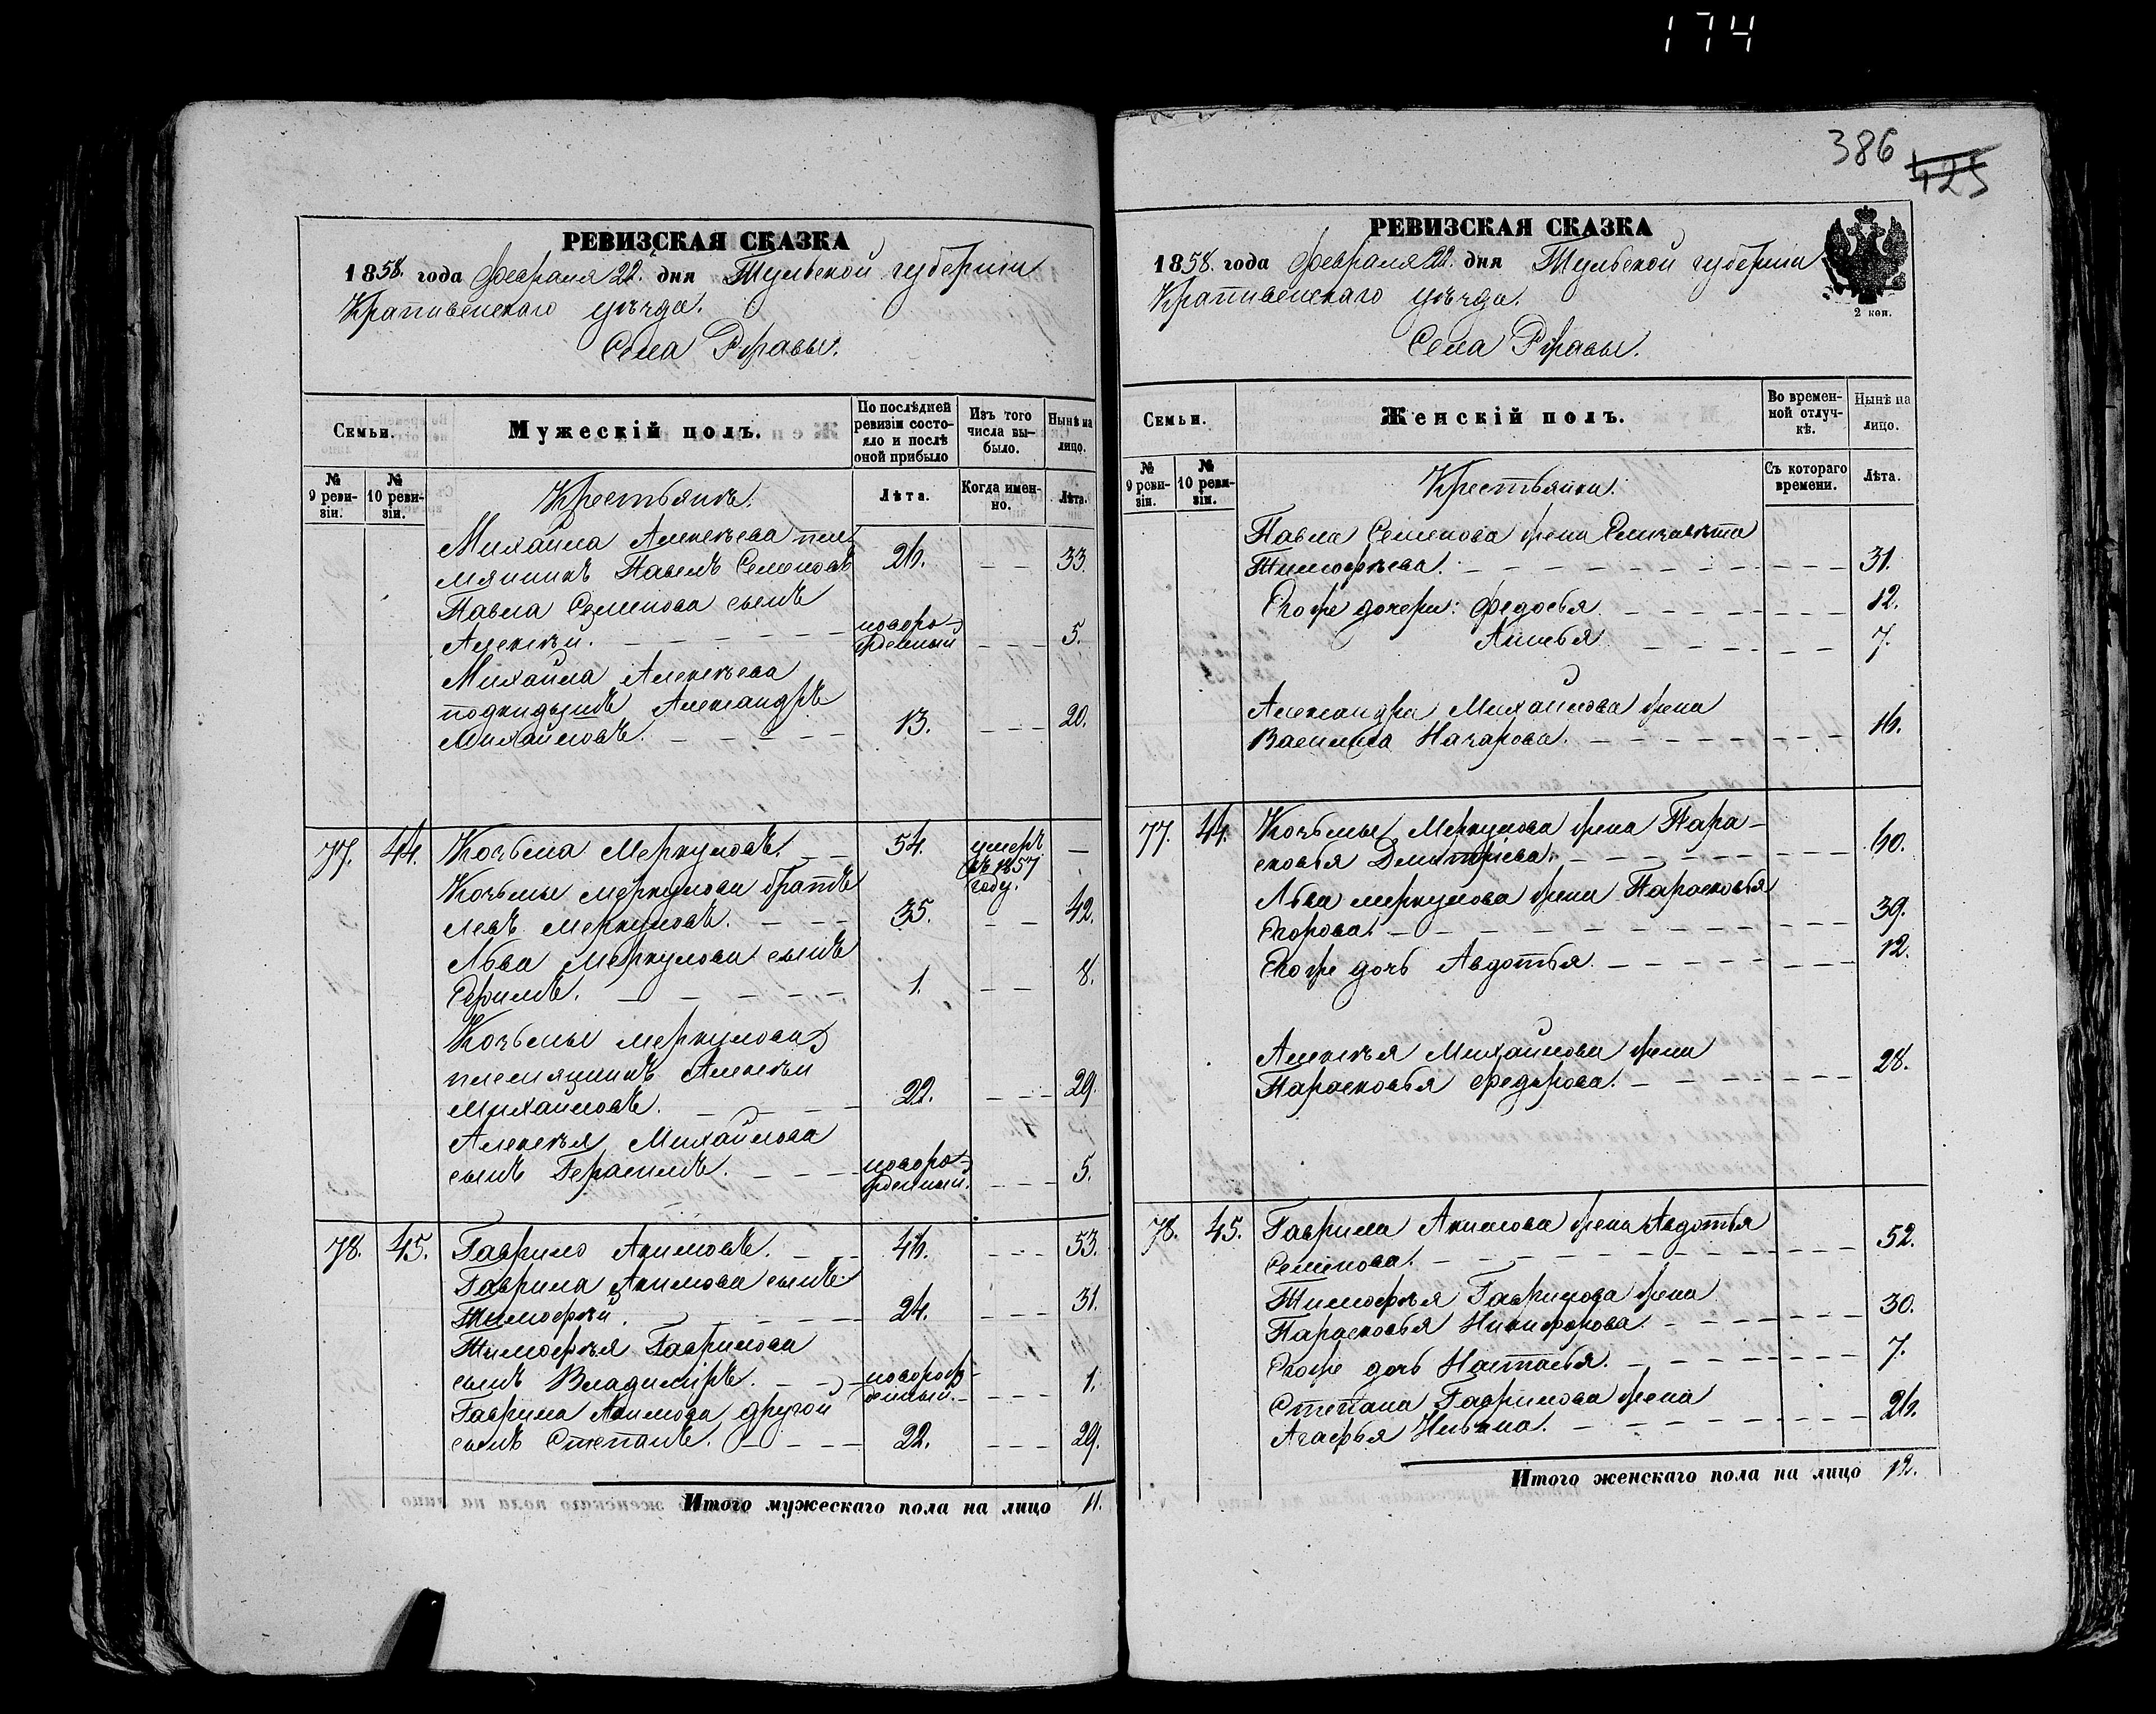 174
386
425
РЕВИЗСКАЯ СКАЗКА
1858. года Февраля 22. дня Тульской губерніи
Крапивенскаго уѣзда.
Села Ржавы.
Семьи.
Мужескій полъ.
По послѣдней ревизіи состояло и послѣ оной прибыло
Изъ того числа выбыло.
Нынѣ на лицо.
№ 9 ревизіи.
№ 10 ревизіи.
Крестьянъ.
Лѣта.
Когда именно.
Лѣта.
Михайла Алексѣева пле
мянникъ Павелъ Семеновъ 26. — — 33.
Павла Семенова сынъ
Алексѣй. новорожденный — — 5.
Михайла Алексѣева
подкидышъ Александръ
Михайловъ. 13. — — 20.
77. 44. Козьма Меркуловъ. 54. умеръ въ 1857 году. —
Козьмы Меркулова братъ
Левъ Меркуловъ. 35. — — 42.
Льва Меркулова сынъ
Ефимъ. 1. — — 8.
Козьмы Меркулова
племянникъ Алексѣй
Михайловъ. 22. — — 29.
Алексѣя Михайлова
сынъ Герасимъ. новорожденный. — — 5.
78. 45. Гаврило Акимовъ. 46. — — 53.
Гаврила Акимова сынъ
Тимофѣй. 24. — — 31.
Тимофѣя Гаврилова
сынъ Владиміръ. новорожденный. — — 1.
Гаврила Акимова другой
сынъ Степанъ. 22. — — 29.
Итого мужескаго пола на лицо 11.
РЕВИЗСКАЯ СКАЗКА
1858. года Февраля 22. дня Тульской губерніи
Крапивенскаго уѣзда.
Села Ржавы.
2 коп.
Семьи.
Женскій полъ.
Во временной отлучкѣ.
Нынѣ на лицо.
№ 9 ревизіи.
№ 10 ревизіи.
Крестьянки:
Съ котораго времени.
Лѣта.
Павла Семенова жена Елизавѣта
Тимофѣева. 31.
Егоже дочери: Федосья 12.
Анисья 7.
Александра Михайлова жена
Василиса Назарова. 16.
77. 44. Козьмы Меркулова жена Пара-
сковья Дмитріева. 60.
Льва Меркулова жена Парасковья
Егорова. 39.
Егоже дочь Авдотья. 12.
Алексѣя Михайлова жена
Парасковья Федорова. 28.
78. 45. Гаврила Акимова жена Авдотья
Семенова. 52.
Тимофѣя Гаврилова жена
Парасковья Никифорова. 30.
Егоже дочь Наталья. 7.
Степана Гаврилова жена
Агафья Ильина. 26.
Итого женскаго пола на лицо 12.